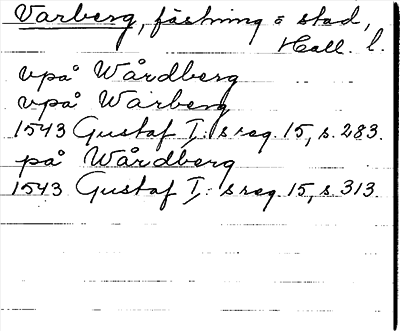 Varberg, fästning o stad,
Hall. l.
vpå Wårdberg
vpå Warberg
1543 Gustaf I:s reg. 15, s. 283.
på Wårdberg
1543 Gustaf I:s reg. 15, s. 313.